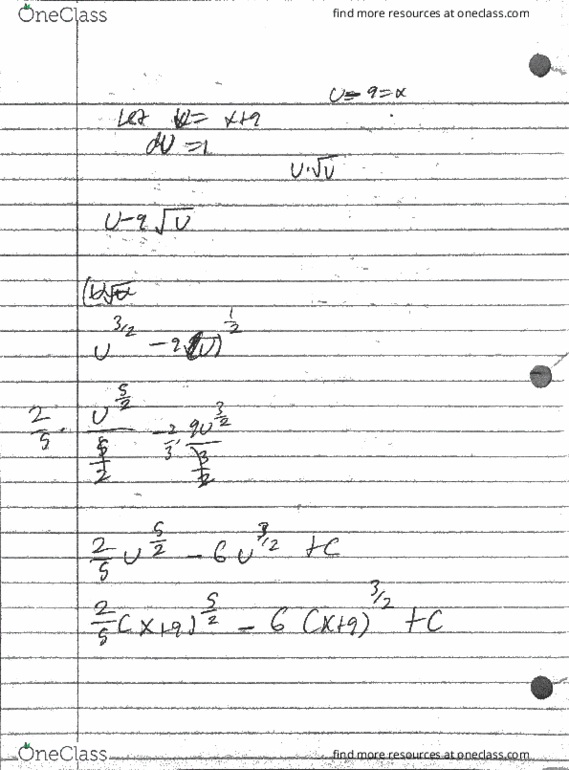 OneClass
find more resources at oneclass.com
U - 9 = x
Let u = x+9
du = 1
U·√U
U-9√U
u^3/2 - 9(u)^1/2
2/5 · u^5/2 / 5/2 - 2/3 · 9u^3/2 / 3/2
2/5 u^5/2 - 6 u^3/2 + C
2/5 (x+9)^5/2 - 6 (x+9)^3/2 + C
OneClass
find more resources at oneclass.com